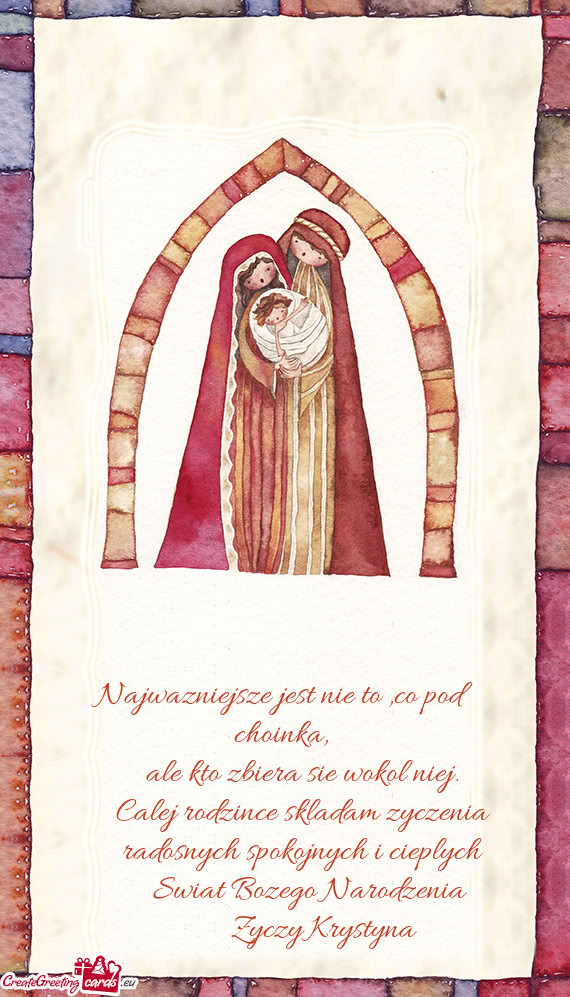 Najwazniejsze jest nie to ,co pod
choinka,
ale kto zbiera sie wokol niej.
Calej rodzince skladam zyczenia
radosnych spokojnych i cieplych
Swiat Bozego Narodzenia
Zyczy Krystyna
CreateGreeting cards .eu